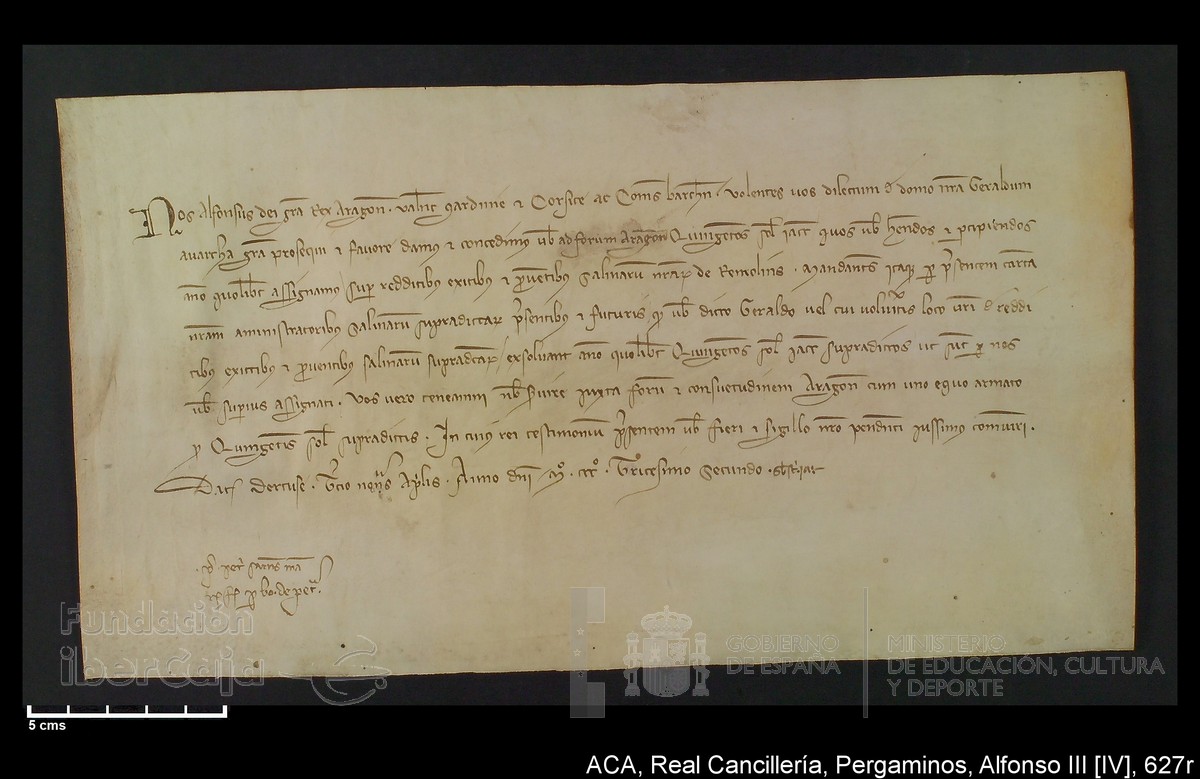 Nos Alfonsus dei gra Rex Aragon. Valnc Sardinie & Corsice ac Coms barchn. Volentes uos dilectum d domo nra Geraldum
auarcha gra prosequi & fauore damus & concedimus ub ad forum Aragon Quingetos sol iacc quos ub hendos & pcipiendos
ano quolibt assignamus sup redditibus exitibus & prouetibus Salinaru nrar de Remolins. Mandants itaq p psentem carta
nram aministratoribus Salinaru supradictar psentibus & futuris q ub dicto Geraldo uel cui uolueritis loco uri d reddi
tibus exitibus & prouentibus salinaru supradcar exsoluant ano quolibt Quingetos sol iacc supradictos ut sut p nos
ub superius assignati. Vos uero teneamini nb seruire iuxta foru & consuetudinem Aragon cum uno equo armato
p Quingetis sol supradictis. In cuius rei testimonium psentem ub fieri & sigillo nro pendenti iussimus comuniri.
Dat Dertuse. tercio nons Aplis. Anno dni M° CCC° Tricesimo Secundo.
de pet
Fundación
iberCaja
GOBIERNO
DE ESPAÑA
MINISTERIO
DE EDUCACIÓN, CULTURA
Y DEPORTE
5 cms
ACA, Real Cancillería, Pergaminos, Alfonso III [IV], 627r